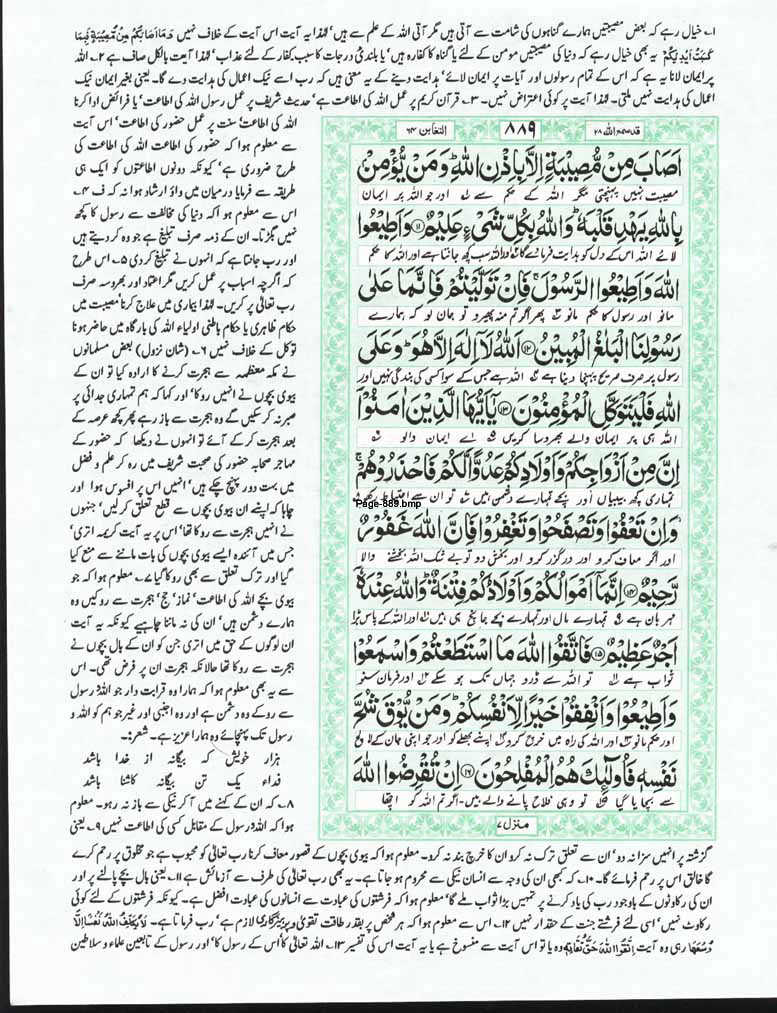 ۱۔ خیال رہے کہ بعض مصیبتیں ہمارے گناہوں کی شامت سے آتی ہیں مگر آتی اللہ کے علم سے ہیں‘ لہٰذا یہ آیت اس آیت کے خلاف نہیں وَمَا اَصَابَكُمْ مِّنْ مُّصِيْبَةٍ فَبِمَا
كَسَبَتْ اَيْدِيْكُمْ یہ بھی خیال رہے کہ دنیا کی مصیبتیں مومن کے لئے یا گناہ کا کفارہ ہیں‘ یا بلندیٔ درجات کا سبب‘ کفار کے لئے عذاب‘ لہٰذا آیت بالکل صاف ہے ۲۔ اللہ
پر ایمان لانا یہ ہے کہ اس کے تمام رسولوں اور آیات پر ایمان لائے‘ ہدایت دینے کے یہ معنی ہیں کہ رب اسے نیک اعمال کی ہدایت دے گا۔ یعنی بغیر ایمان نیک
اعمال کی ہدایت نہیں ملتی۔ لہٰذا آیت پر کوئی اعتراض نہیں۔ ۳۔ قرآن کریم پر عمل اللہ کی اطاعت ہے‘ حدیث شریف پر عمل رسول اللہ کی اطاعت‘ یا فرائض ادا کرنا
اللہ کی اطاعت‘ سنت پر عمل حضور کی اطاعت‘ اس آیت
سے معلوم ہوا کہ حضور کی اطاعت اللہ کی اطاعت کی
طرح ضروری ہے‘ کیونکہ دونوں اطاعتوں کو ایک ہی
طریقہ سے فرمایا درمیان میں واؤ ارشاد ہوا نہ کہ ف ۴۔
اس سے معلوم ہوا کہ دنیا کی مخالفت سے رسول کا کچھ
نہیں بگڑتا۔ ان کے ذمہ صرف تبلیغ ہے جو وہ کر دیتے ہیں
اور رب جانتا ہے کہ انہوں نے تبلیغ کر دی ۵۔ اس طرح
کہ اگرچہ اسباب پر عمل کریں مگر اعتماد اور بھروسہ صرف
رب تعالیٰ پر کریں۔ لہٰذا بیماری میں علاج کرنا‘ مصیبت میں
حکام ظاہری یا حکام باطنی اولیاء اللہ کی بارگاہ میں حاضر ہونا
توکل کے خلاف نہیں ۶۔ (شان نزول) بعض مسلمانوں
نے مکہ معظمہ سے ہجرت کرنے کا ارادہ کیا تو ان کے
بیوی بچوں نے انہیں روکا‘ اور کہا کہ ہم تمہاری جدائی پر
صبر نہ کر سکیں گے وہ ہجرت سے باز رہے پھر کچھ عرصہ کے
بعد ہجرت کر کے آئے تو انہوں نے دیکھا کہ حضور کے
مہاجر صحابہ حضور کی صحبت شریف میں رہ کر علم و فضل
میں بہت دور پہنچ چکے ہیں‘ انہیں اس پر افسوس ہوا اور
چاہا کہ اپنے ان بیوی بچوں سے قطع تعلق کر لیں‘ جنہوں
نے انہیں ہجرت سے روکا تھا‘ اس پر یہ آیت کریمہ اتری‘
جس میں آئندہ ایسے بیوی بچوں کی بات ماننے سے منع کیا
گیا اور ترک تعلق سے بھی روکا گیا ۷۔ معلوم ہوا کہ جو
بیوی بچے اللہ کی اطاعت‘ نماز‘ حج‘ ہجرت سے روکیں وہ
ہمارے دشمن ہیں‘ ان کی نہ ماننا چاہیے کیونکہ یہ آیت
ان لوگوں کے حق میں اتری جن کو ان کے بال بچوں نے
ہجرت سے روکا تھا حالانکہ ہجرت ان پر فرض تھی۔ اس
سے یہ بھی معلوم ہوا کہ ہمارا وہ قرابت دار جو اللہ رسول
سے روکے وہ دشمن ہے اور وہ اجنبی اور غیر جو ہم کو اللہ و
رسول تک پہنچائے وہ ہمارا عزیز ہے۔ شعر:۔
ہزار خویش کہ بیگانہ از خدا باشد
فداء یک تن بیگانہ کاشنا باشد
۸۔ کہ ان کے کہنے میں آ کر نیکی سے باز نہ رہو۔ معلوم
ہوا کہ اللہ رسول کے مقابل کسی کی اطاعت نہیں ۹۔ یعنی
قد سمع اللہ ۲۸
۸۸۹
التغابن ۶۴
اَصَابَ مِنْ مُّصِيْبَةٍ اِلَّا بِاِذْنِ اللّٰهِ وَمَنْ يُّؤْمِنْ
مصیبت نہیں پہنچتی مگر اللہ کے حکم سے ۱ اور جو اللہ پر ایمان
بِاللّٰهِ يَهْدِ قَلْبَهٗ وَاللّٰهُ بِكُلِّ شَيْءٍ عَلِيْمٌ ۱۱ وَاَطِيْعُوا
لائے اللہ اس کے دل کو ہدایت فرمادے گا ۲ اور اللہ سب کچھ جانتا ہے اور اللہ کا حکم
اللّٰهَ وَاَطِيْعُوا الرَّسُوْلَ فَاِنْ تَوَلَّيْتُمْ فَاِنَّمَا عَلٰى
مانو اور رسول کا حکم مانو ۳ پھر اگر تم منہ پھیرو تو جان لو کہ ہمارے
رَسُوْلِنَا الْبَلٰغُ الْمُبِيْنُ ۱۲ اَللّٰهُ لَآ اِلٰهَ اِلَّا هُوَ وَعَلَى
رسول پر صرف صریح پہنچا دینا ہے ۴ اللہ ہے جس کے سوا کسی کی بندگی نہیں اور
اللّٰهِ فَلْيَتَوَكَّلِ الْمُؤْمِنُوْنَ ۱۳ يٰٓاَيُّهَا الَّذِيْنَ اٰمَنُوْٓا
اللہ ہی پر ایمان والے بھروسا کریں ۵ اے ایمان والو ۶
اِنَّ مِنْ اَزْوَاجِكُمْ وَاَوْلَادِكُمْ عَدُوًّا لَّكُمْ فَاحْذَرُوْهُمْ
تمہاری کچھ بیبیاں اور بچے تمہارے دشمن ہیں ۷ تو ان سے احتیاط رکھو
Page-889.bmp
وَاِنْ تَعْفُوْا وَتَصْفَحُوْا وَتَغْفِرُوْا فَاِنَّ اللّٰهَ غَفُوْرٌ
اور اگر معاف کرو اور درگزر کرو اور بخش دو تو بے شک اللہ بخشنے والا
رَّحِيْمٌ ۱۴ اِنَّمَآ اَمْوَالُكُمْ وَاَوْلَادُكُمْ فِتْنَةٌ وَاللّٰهُ عِنْدَهٗٓ
مہربان ہے ۹ تمہارے مال اور تمہارے بچے جانچ ہی ہیں ۱۰ اور اللہ کے پاس بڑا
اَجْرٌ عَظِيْمٌ ۱۵ فَاتَّقُوا اللّٰهَ مَا اسْتَطَعْتُمْ وَاسْمَعُوْا
ثواب ہے ۱۱ تو اللہ سے ڈرو جہاں تک ہو سکے ۱۲ اور فرمان سنو
وَاَطِيْعُوْا وَاَنْفِقُوْا خَيْرًا لِّاَنْفُسِكُمْ وَمَنْ يُّوْقَ شُحَّ
اور حکم مانو ۱۳ اور اللہ کی راہ میں خرچ کرو اپنے بھلے کو اور جو اپنی جان کے لالچ
نَفْسِهٖ فَاُولٰٓئِكَ هُمُ الْمُفْلِحُوْنَ ۱۶ اِنْ تُقْرِضُوا اللّٰهَ
سے بچایا گیا تو وہی فلاح پانے والے ہیں۔ اگر تم اللہ کو اچھا
منزل ۷
گزشتہ پر انہیں سزا نہ دو‘ ان سے تعلق ترک نہ کرو ان کا خرچ بند نہ کرو۔ معلوم ہوا کہ بیوی بچوں کے قصور معاف کرنا رب تعالیٰ کو محبوب ہے جو مخلوق پر رحم کرے
گا خالق اس پر رحم فرمائے گا۔ ۱۰۔ کہ کبھی ان کی وجہ سے انسان نیکی سے محروم ہو جاتا ہے۔ یہ بھی رب تعالیٰ کی طرف سے آزمائش ہے ۱۱۔ یعنی بال بچے پالنے پر اور
ان کی رکاوٹوں کے باوجود رب کی یاد کرنے پر تمہیں بڑا ثواب ملے گا‘ معلوم ہوا کہ فرشتوں کی عبادت سے انسانوں کی عبادت افضل ہے۔ کیونکہ فرشتوں کے لئے کوئی
رکاوٹ نہیں‘ اسی لئے فرشتے جنت کے حقدار نہیں ۱۲۔ اس سے معلوم ہوا کہ ہر شخص پر بقدر طاقت تقویٰ و پرہیزگاری لازم ہے‘ رب فرماتا ہے۔ لَا يُكَلِّفُ اللّٰهُ نَفْسًا اِلَّا
وُسْعَهَا رہی وہ آیت اِتَّقُوا اللّٰهَ حَقَّ تُقَاتِهٖ وہ یا تو اس آیت سے منسوخ ہے یا یہ آیت اس کی تفسیر ۱۳۔ اللہ تعالیٰ کا‘ اس کے رسول کا‘ اور رسول کے تابعین علماء و سلاطین